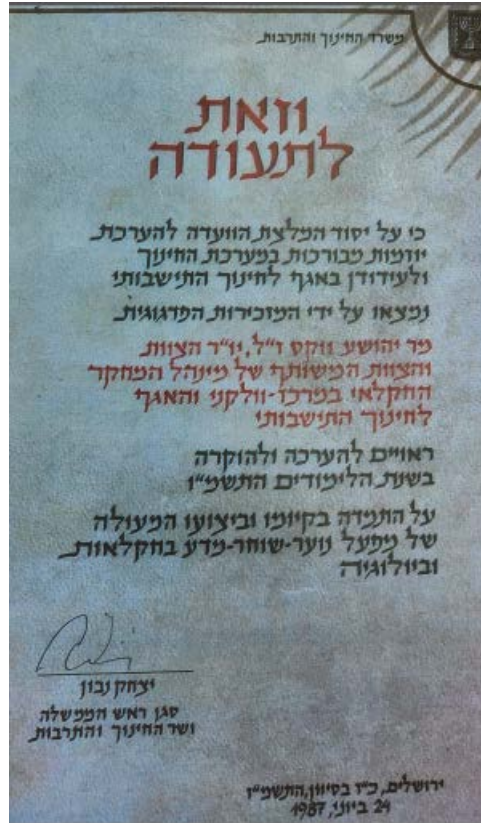 משרד החינוך והתרבות
וזאת
לתעודה
כי על יסוד המלצת הוועדה להערכת
יוזמות מבורכות במערכת החינוך
ולעידודן באגף לחינוך התישבותי
נמצאו על ידי המזכירות הפדגוגית
מר יהושע ווקס ז״ל, יו״ר הצוות
והצוות המשותף של מינהל המחקר
החקלאי במרכז-וולקני והאגף
לחינוך התישבותי
ראויים להערכה ולהוקרה
בשנת הלימודים התשמ״ו
על התמדה בקיומו וביצועו המעולה
של מפעל נוער-שוחר-מדע בחקלאות
וביולוגיה
יצחק נבון
סגן ראש הממשלה
ושר החינוך והתרבות
ירושלים, כ״ז בסיוון, התשמ״ז
24 ביוני, 1987